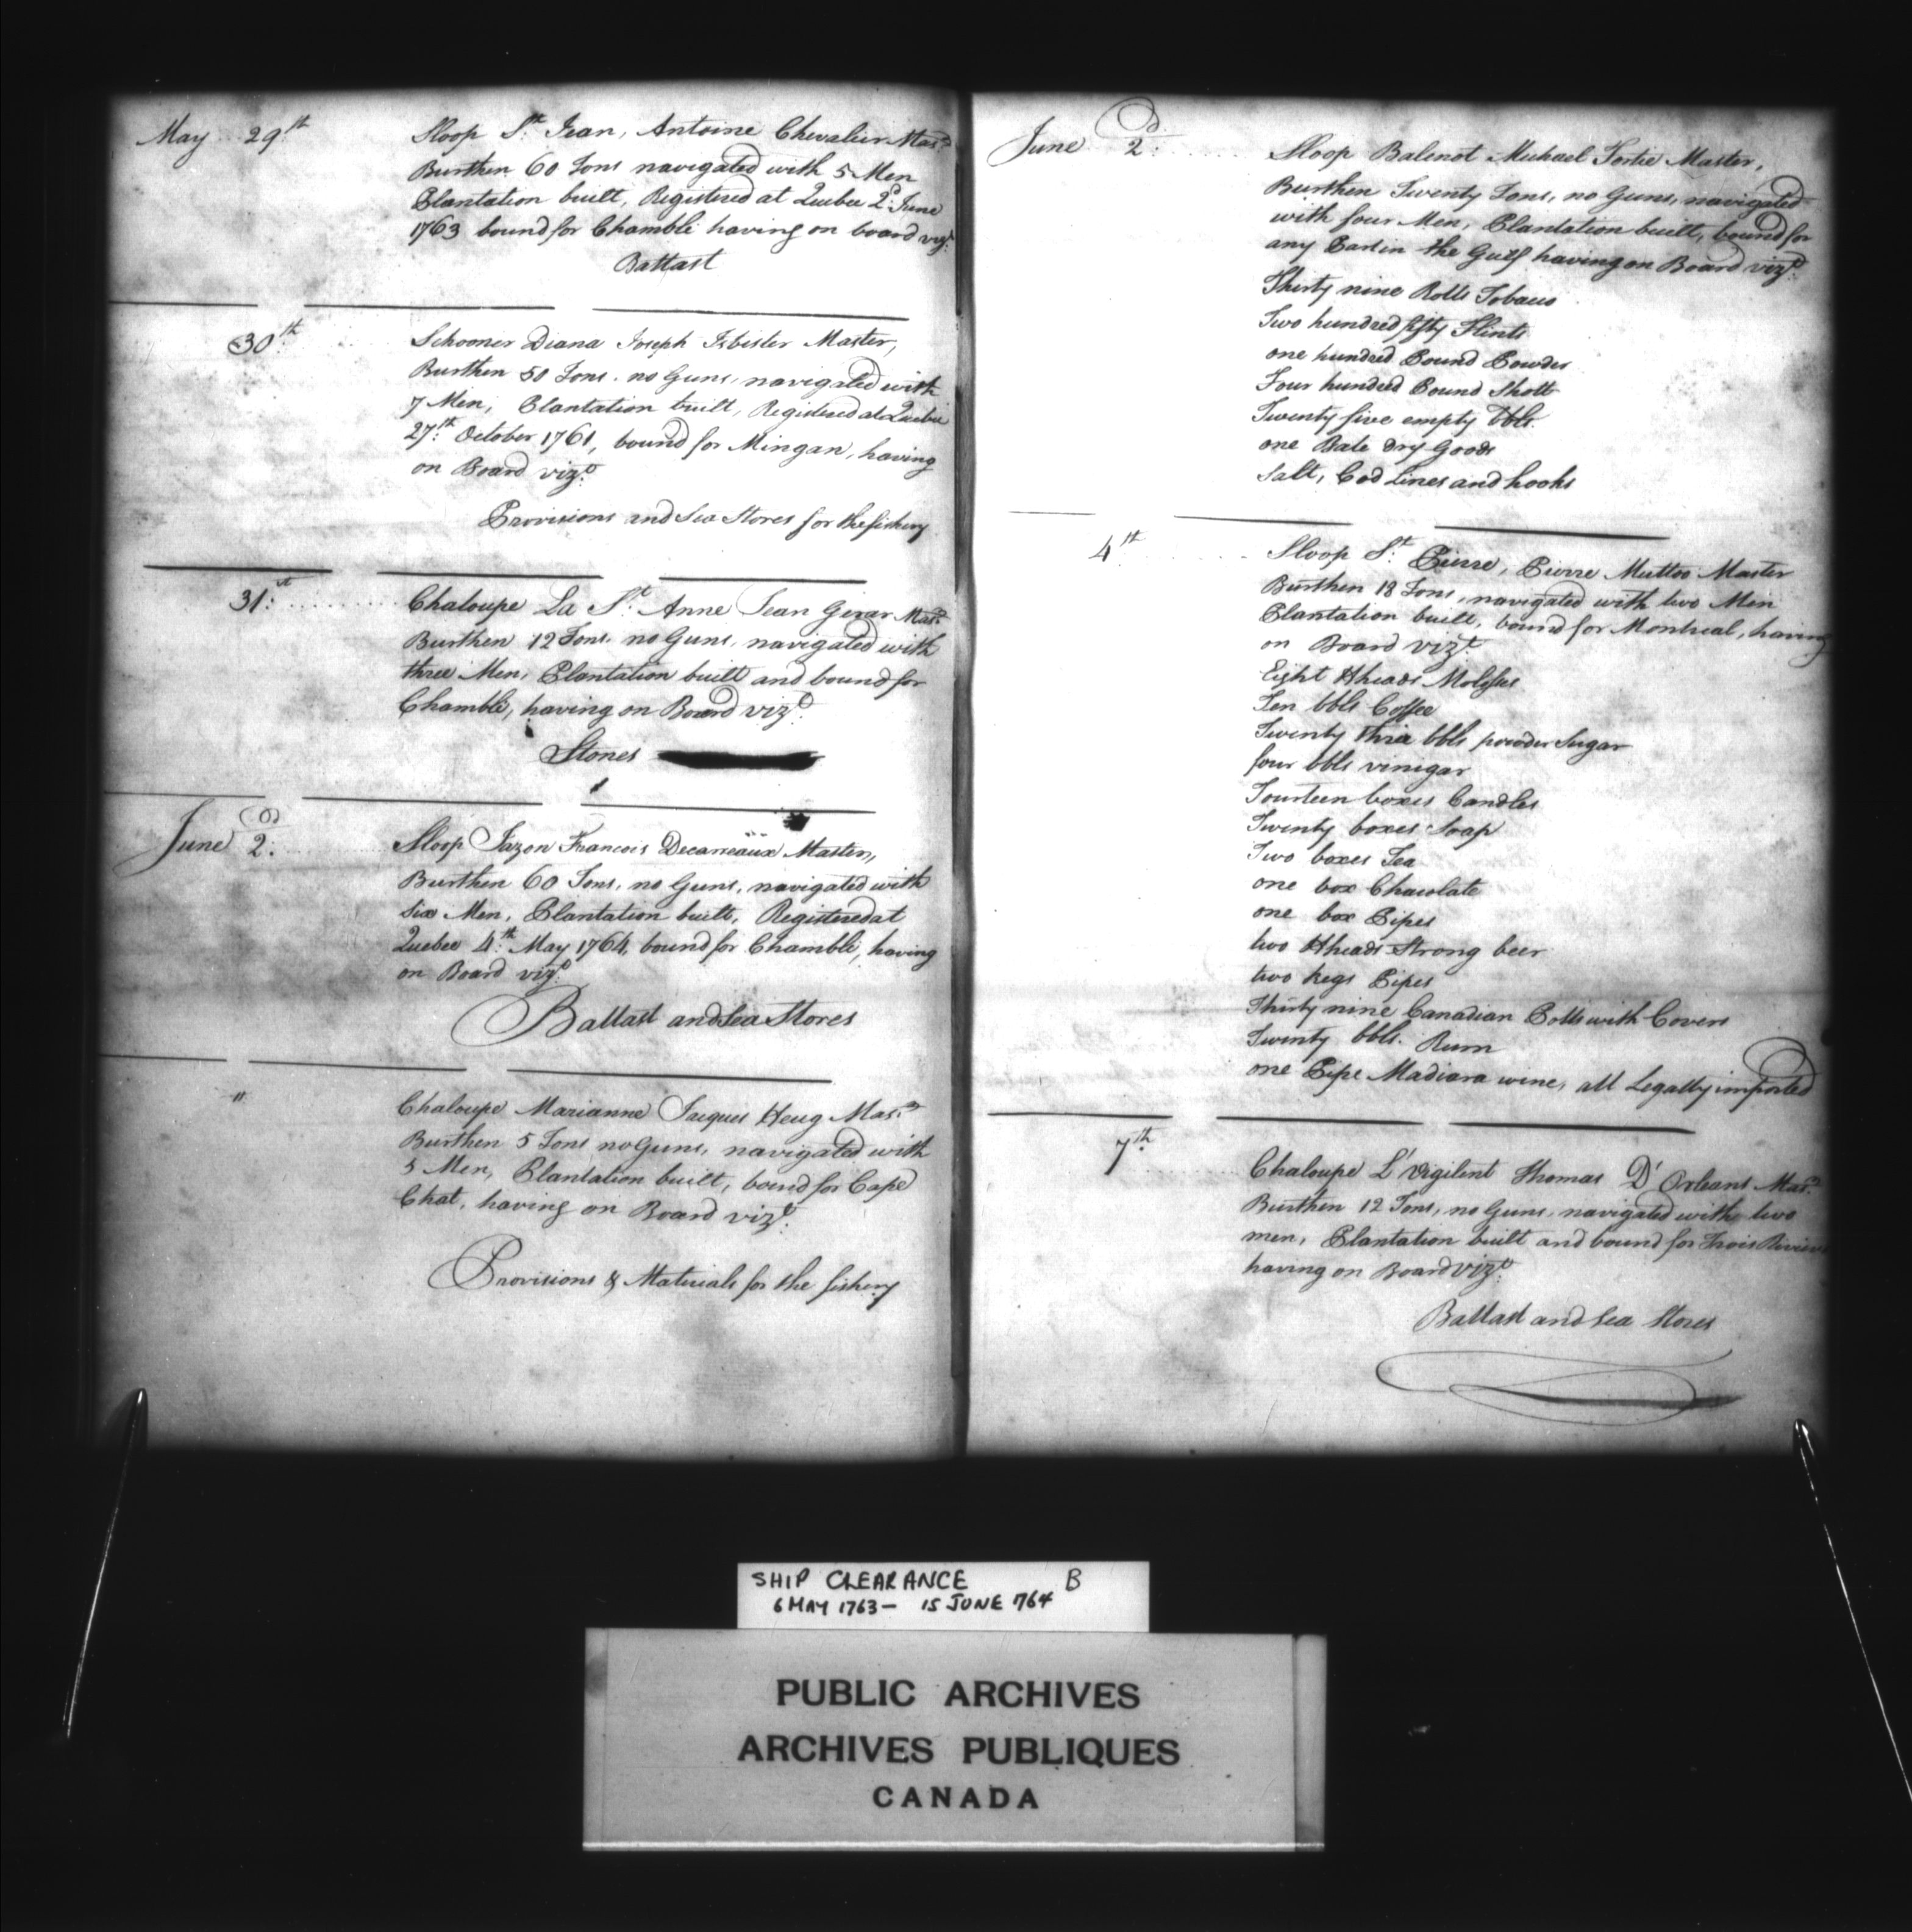 May 29th
Sloop St. Jean, Antoine Chevalier Mas.r
Burthen 60 Tons navigated with 5 Men
Plantation built, Registered at Quebec 2d. June
1763 bound for Chamble having on board vizt.
Ballast
30th.
Schooner Diana Joseph Isbister Master,
Burthen 50 Tons. no Guns, navigated with
7 Men, Plantation built, Registered at Quebec
27th. October 1761, bound for Mingan, having
on Board vizt.
Provisions and Sea Stores for the fishery
31st.
Chaloupe La St. Anne Jean Gerar Mas.r
Burthen 12 Tons. no Guns, navigated with
three Men, Plantation built and bound for
Chamblé, having on Board vizt.
Stones
June 2d.
Sloop Jazon Francois Decarreaux Master,
Burthen 60 Tons, no Guns, navigated with
Six Men, Plantation built, Registered at
Quebec 4th. May 1764, bound for Chamblé, having
on Board vizt.
Ballast and Sea Stores
"
Chaloupe Marianne Jacques Heug Mas.r
Burthen 5 Tons no Guns, navigated with
5 Men, Plantation built, bound for Cape
Chat, having on Board vizt.
Provisions & Materials for the fishery
June 2d.
Sloop Balenot Michael Fortie Master,
Burthen Twenty Tons, no Guns, navigated
with four Men, Plantation built, bound for
any Part in the Gulf having on Board vizt.
Thirty nine Rolls Tobacco
Two hundred fifty Flints
one hundred Pound Powder
Four hundred Pound Shott
Twenty five empty bbls.
one Bale dry Goods
Salt, Cod Lines and hooks
4th
Sloop St. Pierre, Pierre Muttos Master
Burthen 18 Tons, navigated with two Men
Plantation built, bound for Montreal, having
on Board vizt.
Eight Hheads Molasses
Ten bbls Coffee
Twenty three bbls powder Sugar
four bbls vinigar
Fourteen boxes Candles
Twenty boxes Soap
Two boxes Tea
one box Chacolate
one box Pipes
two Hheads Strong beer
two kegs Pipes
Thirty nine Canadian Potts with Covers
Twenty bbls. Rum
one Pipe Madiara wine, all Legally imported
7th.
Chaloupe L'Vigilent Thomas D'Orleans Mas.r
Burthen 12 Tons, no Guns, navigated with two
men, Plantation built and bound for Trois Rivieres
having on Board vizt.
Ballast and Sea Stores
SHIP CLEARANCE B
6 MAY 1763 - 15 JUNE 764
PUBLIC ARCHIVES
ARCHIVES PUBLIQUES
CANADA